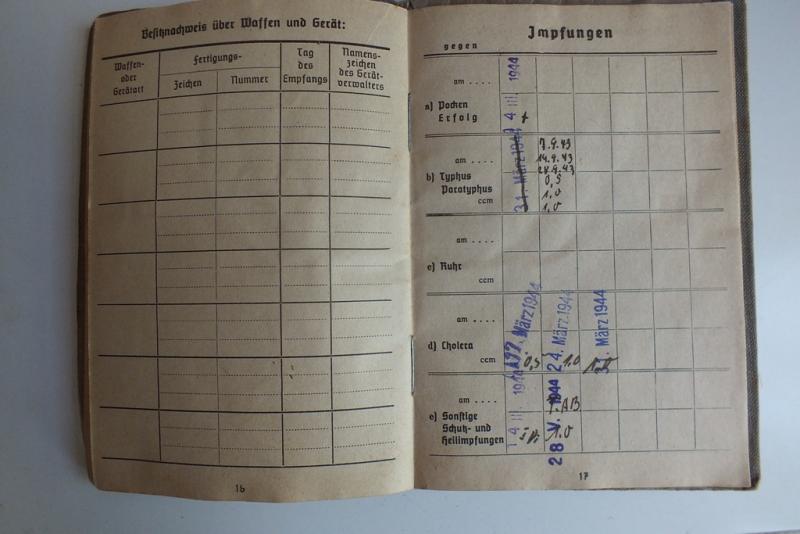 Besitznachweis über Waffen und Gerät:
Waffen-
oder
Gerätart
Fertigungs-
Zeichen
Nummer
Tag
des
Empfangs
Namens-
zeichen
des Gerät-
verwalters
16
Impfungen
gegen
am . . . .
a) Pocken
Erfolg
4 III. 1944
+
am . . . .
b) Typhus
Paratyphus
ccm
31. März 1944
7.9.43
14.9.43
0,5
1.0
1.0
am . . . .
c) Ruhr
ccm
am . . . .
d) Cholera
ccm
März 1944
24. März 1944
März 1944
0,5
1.0
am . . . .
e) Sonstige
Schutz- und
Heilimpfungen
4 III. 1944
28 V. 1944
T.AB
1.0
17